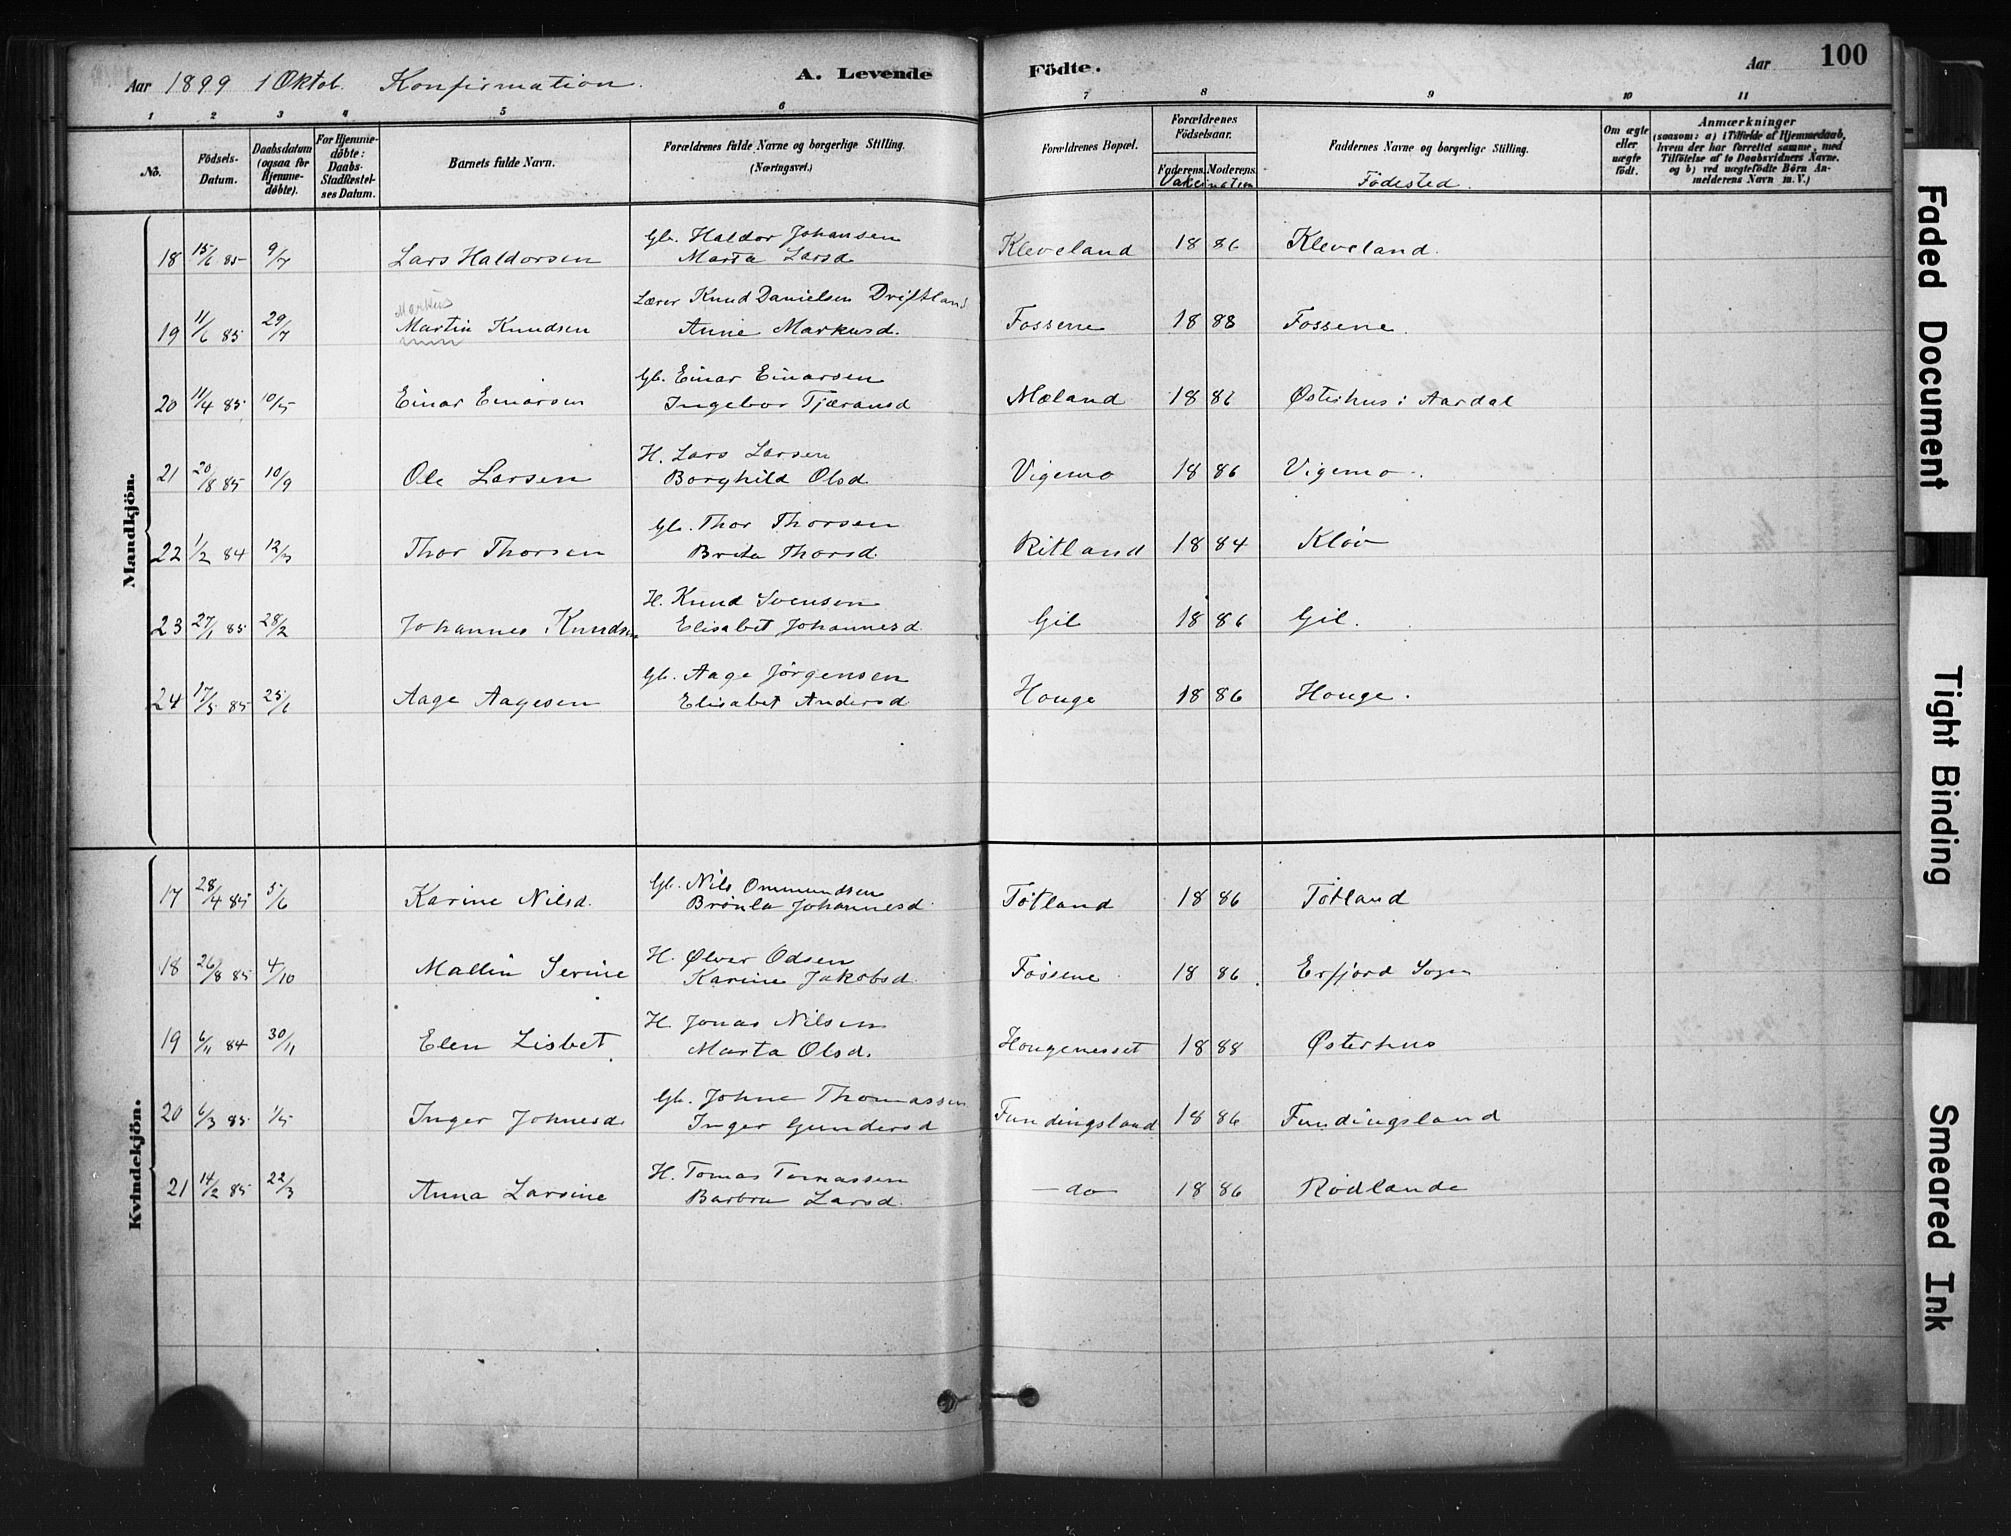 Aar 1899 1 Oktob. Konfirmation. A. Levende Födte. Aar 100
1 2 3 4 5 6 7 8 9 10 11
No.
Födsels-Datum.
Daabsdatum (ogsaa for Hjemme-döbte).
For Hjemme-döbte: Daabs-Stadfæstel-ses Datum.
Barnets fulde Navn.
Forældrenes fulde Navne og borgerlige Stilling.
(Næringsvei.)
Forældrenes Bopæl.
Forældrenes Födselsaar.
Faderens. Moderens.
Vakcination
Faddernes Navne og borgerlige Stilling.
Födested.
Om ægte eller uægte født.
Anmærkninger
(saasom: a) i Tilfælde af Hjemmedaab,
hvem der har forrettet samme, med
Tilföielse af to Daabsvidners Navne,
og b) ved uægtefödte Börn An-
melderens Navn m. V.)
Mandkjön.
18 15/6 85 9/7 Lars Haldorsen Gb. Haldor Johansen Kleveland 18 86 Kleveland.
Marta Larsd
Markus
19 11/6 85 29/7 Martin Knudsen Lærer Knud Danielsen Driftland Fossene 18 88 Fossene.
Anne Markusd.
20 11/4 85 10/5 Einar Einarsen Gb. Einar Einarsen Mæland 18 86 Østerhus i Aardal
Ingebor Tjæransd
21 20/8 85 10/9 Ole Larsen H. Lars Larsen Vigemo 18 86 Vigemo.
Borghild Olsd.
22 1/2 84 12/3 Thor Thorsen Gb. Thor Thorsen Ritland 18 84 Kløv
Brita Thorsd.
23 27/1 85 28/2 Johannes Knudsen H. Knud Svensen Gil 18 86 Gil.
Elisabet Johannesd
24 17/5 85 25/6 Aage Aagesen Gb. Aage Jørgensen Houge 18 86 Houge.
Elisabet Andersd
Kvindekjön.
17 28/4 85 5/6 Karine Nilsd. Gb. Nils Ommundsen Tøtland 18 86 Tøtland
Brønla Johannesd
18 26/8 85 4/10 Mallin Serine H. Ølver Odsen Fossene 18 86. Erfjord Sogn
Karine Jakobsd.
19 6/11 84 30/11 Elen Lisbet H. Jonas Nilsen Hougenesset 18 88 Østerhus
Marta Olsd.
20 6/3 85 1/5 Inger Johnesd. Gb. Johne Thomassen Fundingsland 18 86 Fundingsland
Inger Gundersd
21 14/2 85 22/3 Anna Larsine H. Tomas Tomassen — do — 18 86 Rødlande
Barbra Larsd.
Faded Document
Tight Binding
Smeared Ink